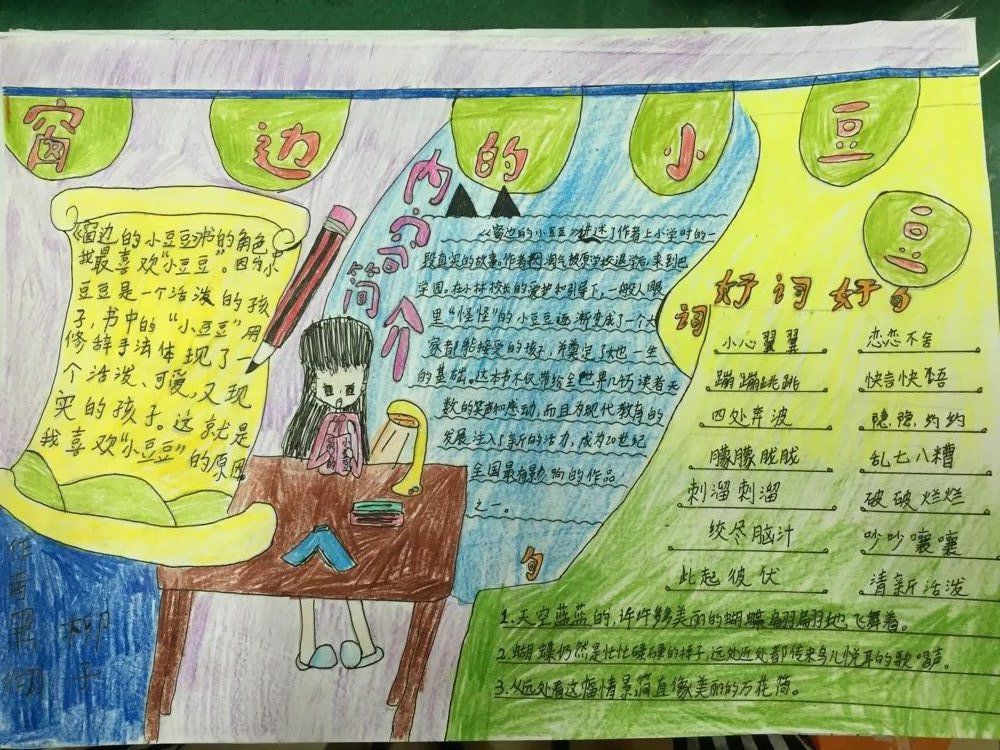 窗边的小豆豆
《窗边的小豆豆》书的角色
我最喜欢“小豆豆”。因为小
豆豆是一个活泼的孩
子,书中的“小豆豆”用
修辞手法体现了一
个活泼、可爱,又现
实的孩子。这就是
我喜欢“小豆豆”的原因。
内容简介
《窗边的小豆豆》讲述了作者上小学时的一
段真实的故事。作者因淘气被原学校退学后,来到巴
学园。在小林校长的爱护和引导下,一般人眼
里“怪怪”的小豆豆逐渐变成了一个大
家都能接受的孩子,并奠定了她一生
的基础。这本书不仅带给全世界几万读者无
数的笑声和感动,而且为现代教育的
发展注入了新的活力,成为20世纪
全国最有影响的作品
之一。
好词好句
词
小心翼翼 恋恋不舍
蹦蹦跳跳 快言快语
四处奔波 隐隐约约
朦朦胧胧 乱七八糟
刺溜刺溜 破破烂烂
绞尽脑汁 吵吵嚷嚷
此起彼伏 清新活泼
句
1.天空蓝蓝的,许许多多美丽的蝴蝶翩翩地飞舞着。
2.蝴蝶仍然是忙忙碌碌的样子,远处近处都传来鸟儿悦耳的歌唱声。
3.从远处看这幅情景简直像美丽的万花筒。